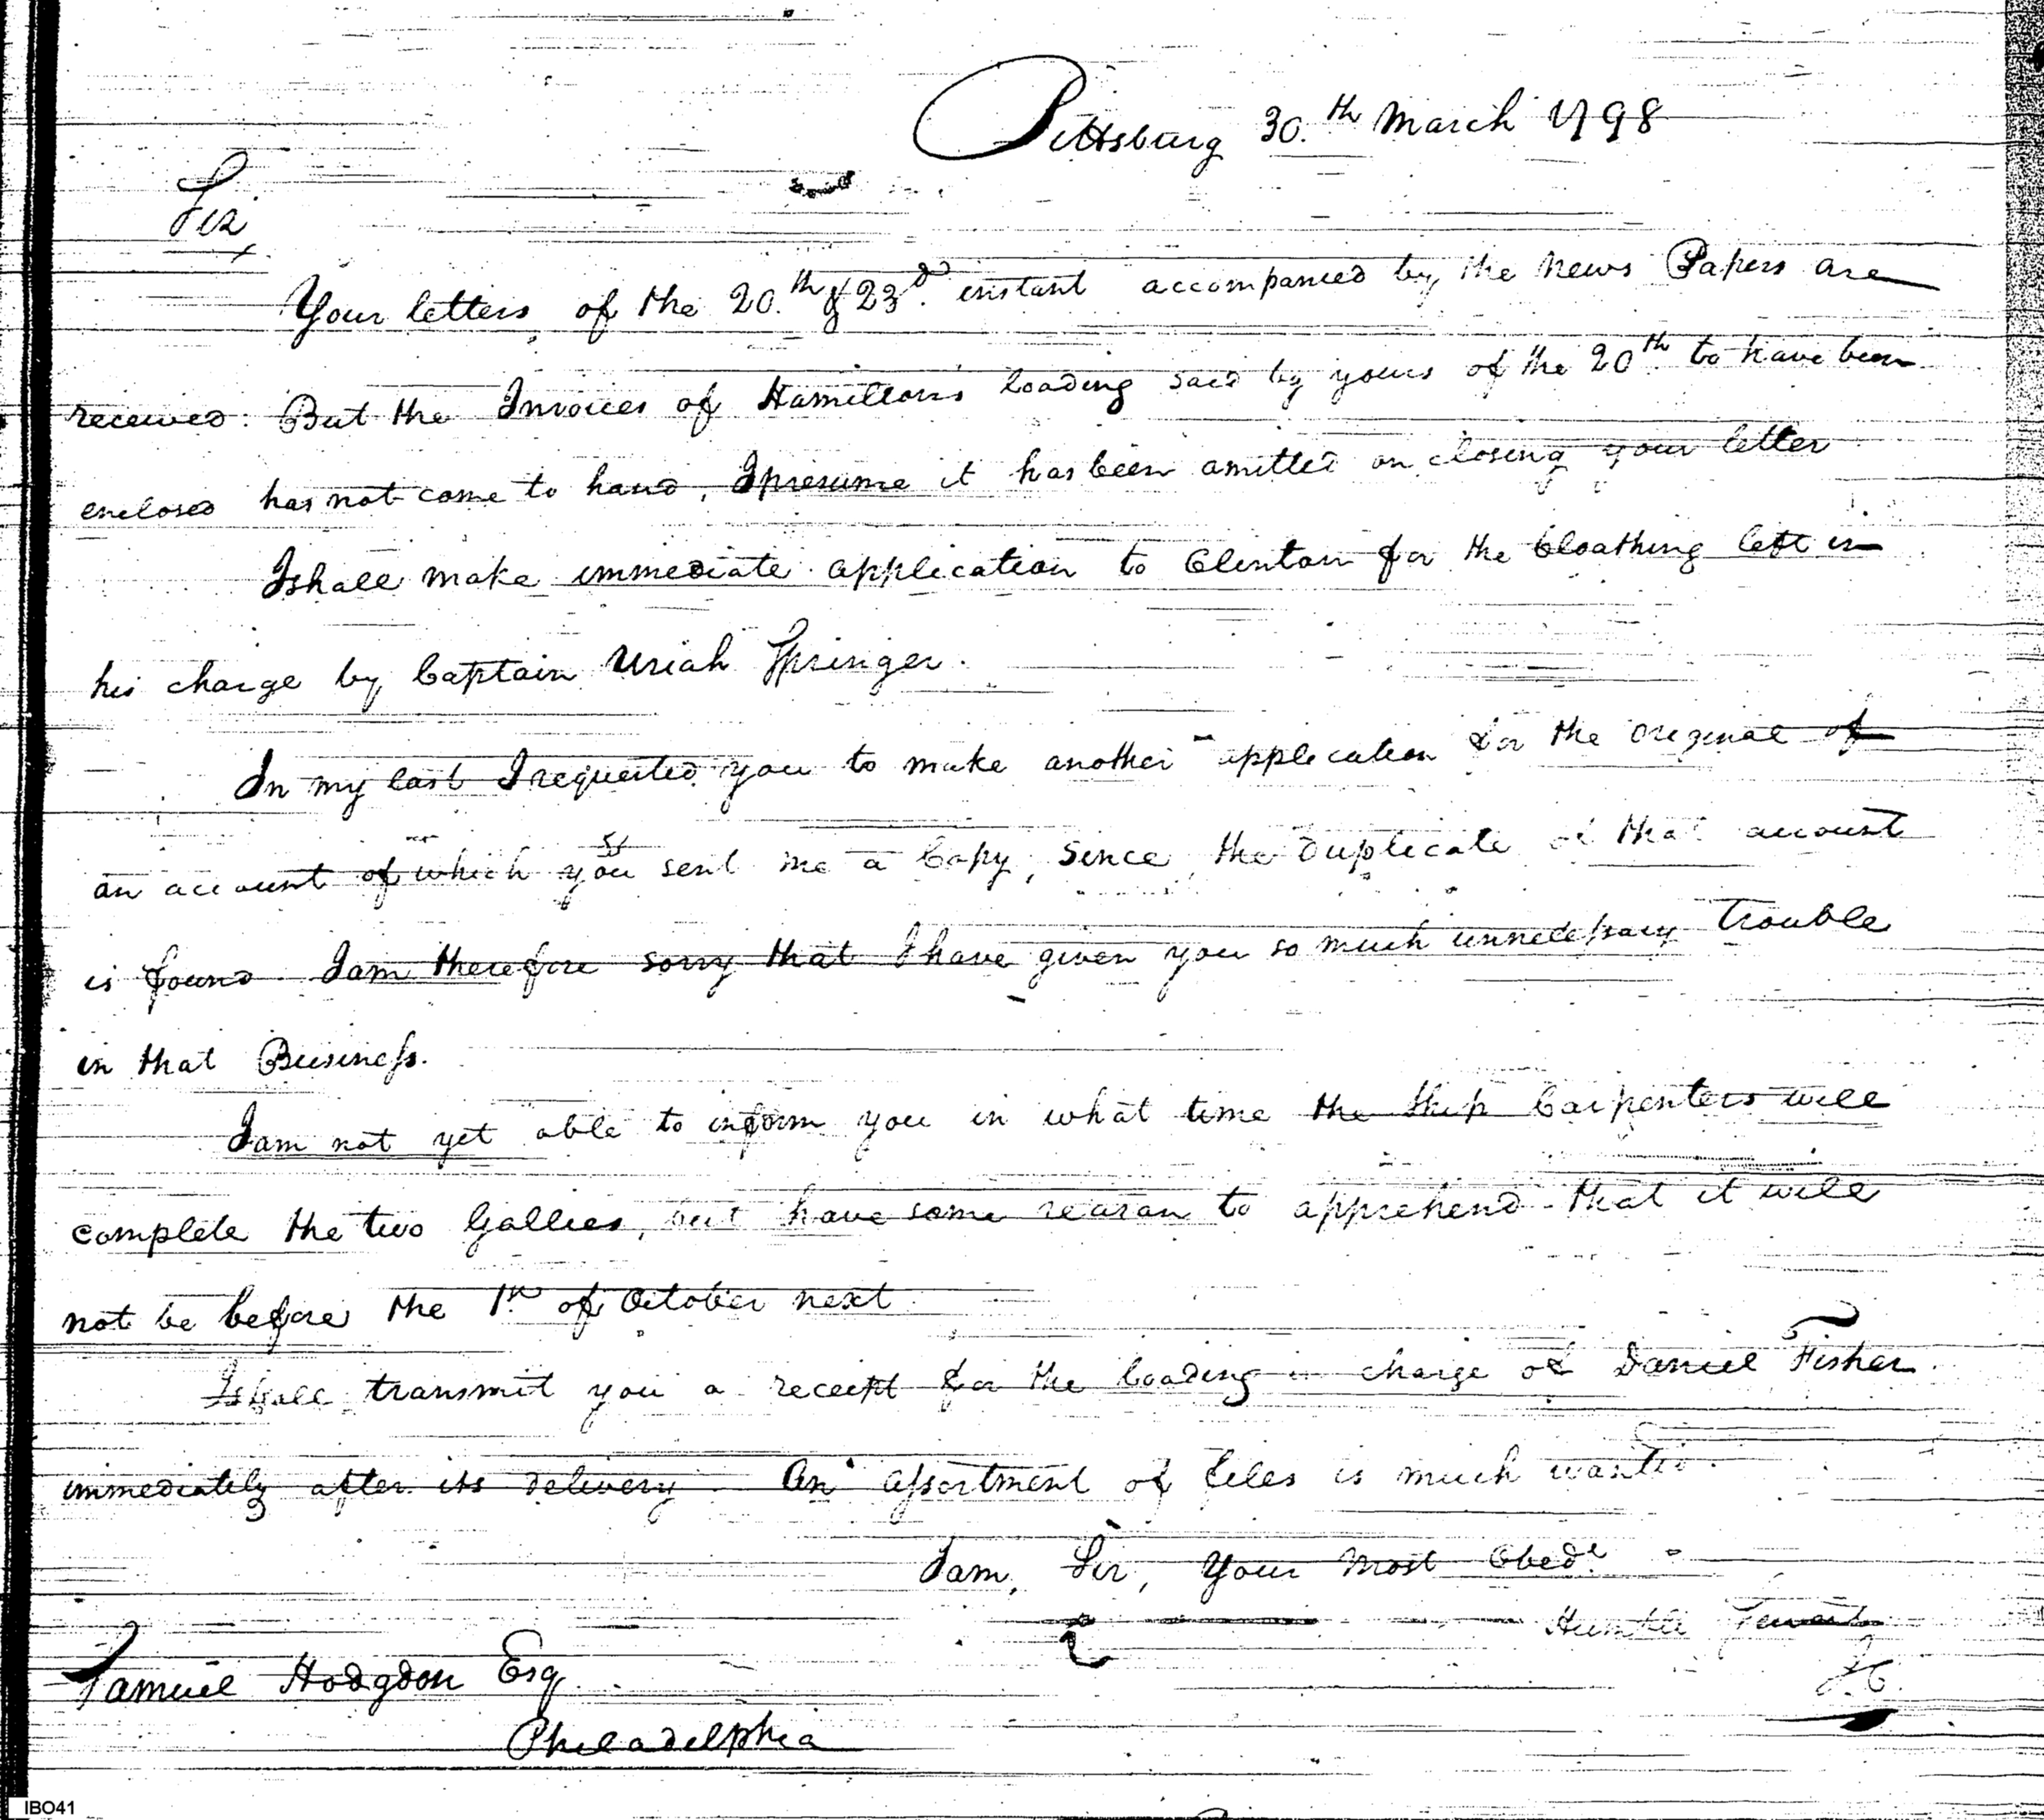 Pittsburg 30.th March 1798
Sir
Your letters of the 20.th & 23.d instant accompanied by the News Papers are
received: But the Invoices of Hamilton's loading said by yours of the 20th to have been
enclosed has not come to hand, I presume it has been omitted on closing your letter
I shall make immediate application to Clinton for the Cloathing left in
his charge by Captain Uriah Springer.
In my last I requested you to make another application for the Original of
an account of which you sent me a Copy, since, the Duplicate of that account
is found. I am therefore sorry that I have given you so much unnecessary trouble
in that Business.
I am not yet able to inform you in what time the Ship Carpenters will
complete the two Gallies, but have some reason to apprehend that it will
not be before the 1st of October next
I shall transmit you a receipt for the loading in charge of Daniel Fisher
immediately after its delivery. An assortment of files is much wanted.
I am, Sir, Your Most Obedt
Humble Servant
Samuel Hodgdon Esq
Philadelphia
IBO41